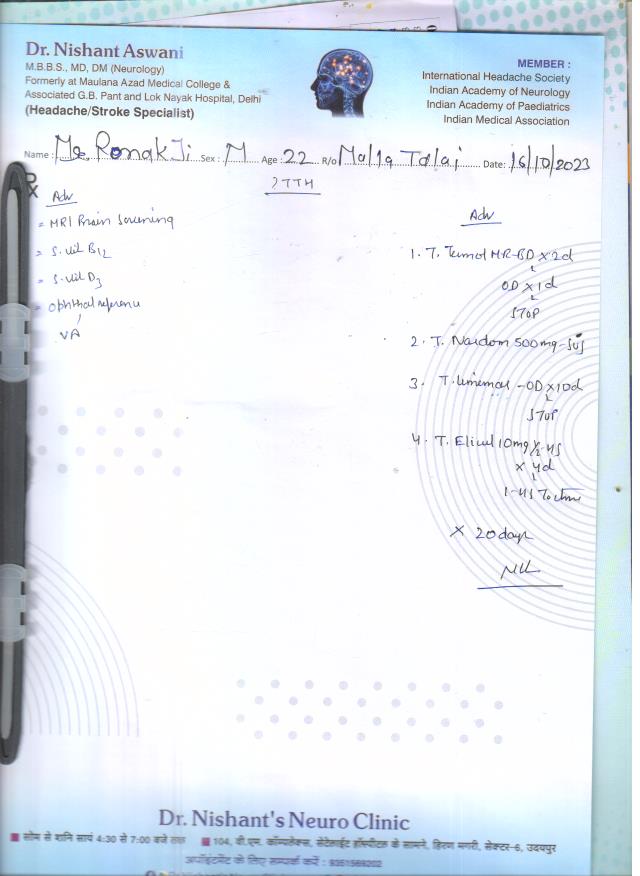 Dr. Nishant Aswani
M.B.B.S., MD, DM (Neurology)
Formerly at Maulana Azad Medical College &
Associated G.B. Pant and Lok Nayak Hospital, Delhi
(Headache/Stroke Specialist)
MEMBER :
International Headache Society
Indian Academy of Neurology
Indian Academy of Paediatrics
Indian Medical Association
Name : Ronak Ji Sex : M Age : 22 R/o Malla Talai Date: 16/10/2023
? TTH
Rx
Adv
MRI Brain Screening
S. Vit B12
S. Vit D3
Ophthal reference
VA
Adv
1. T. MR-BD x 2d
OD x 1d
STOP
2. T. Naxdom 500mg-SOS
3. T. -OD x 10d
STOP
4. T. 10mg ½-HS
x 4d
1-HS
x 20 days
Dr. Nishant's Neuro Clinic
सोम से शनि सायं 4:30 से 7:00 बजे तक 104, बी.एम. कॉम्पलेक्स, सेटेलाईट हॉस्पीटल के सामने, हिरण मगरी, सेक्टर-6, उदयपुर
अपॉइंटमेंट के लिए सम्पर्क करें : 9351569202